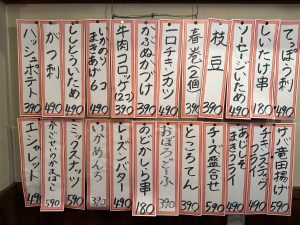 てっぽう刺 490
しいたけ串 180
ソーセージいため 490
枝豆 390
春巻2個 390
一口チキンカツ 490
かぶぬかづけ 390
牛肉コロッケ(2コ) 390
いかのり まきあげ6コ 490
ししとういため 490
がつ刺 490
ハッシュポテト 390
サバ竜田揚げ 590
チキンスティック 490
あじしそ まきフライ 490
チーズ盛合せ 590
ところてん 390
のどがしら串 180
レーズンバター 490
いかめんち 390
ミックスナッツ 590
エシャレット 490